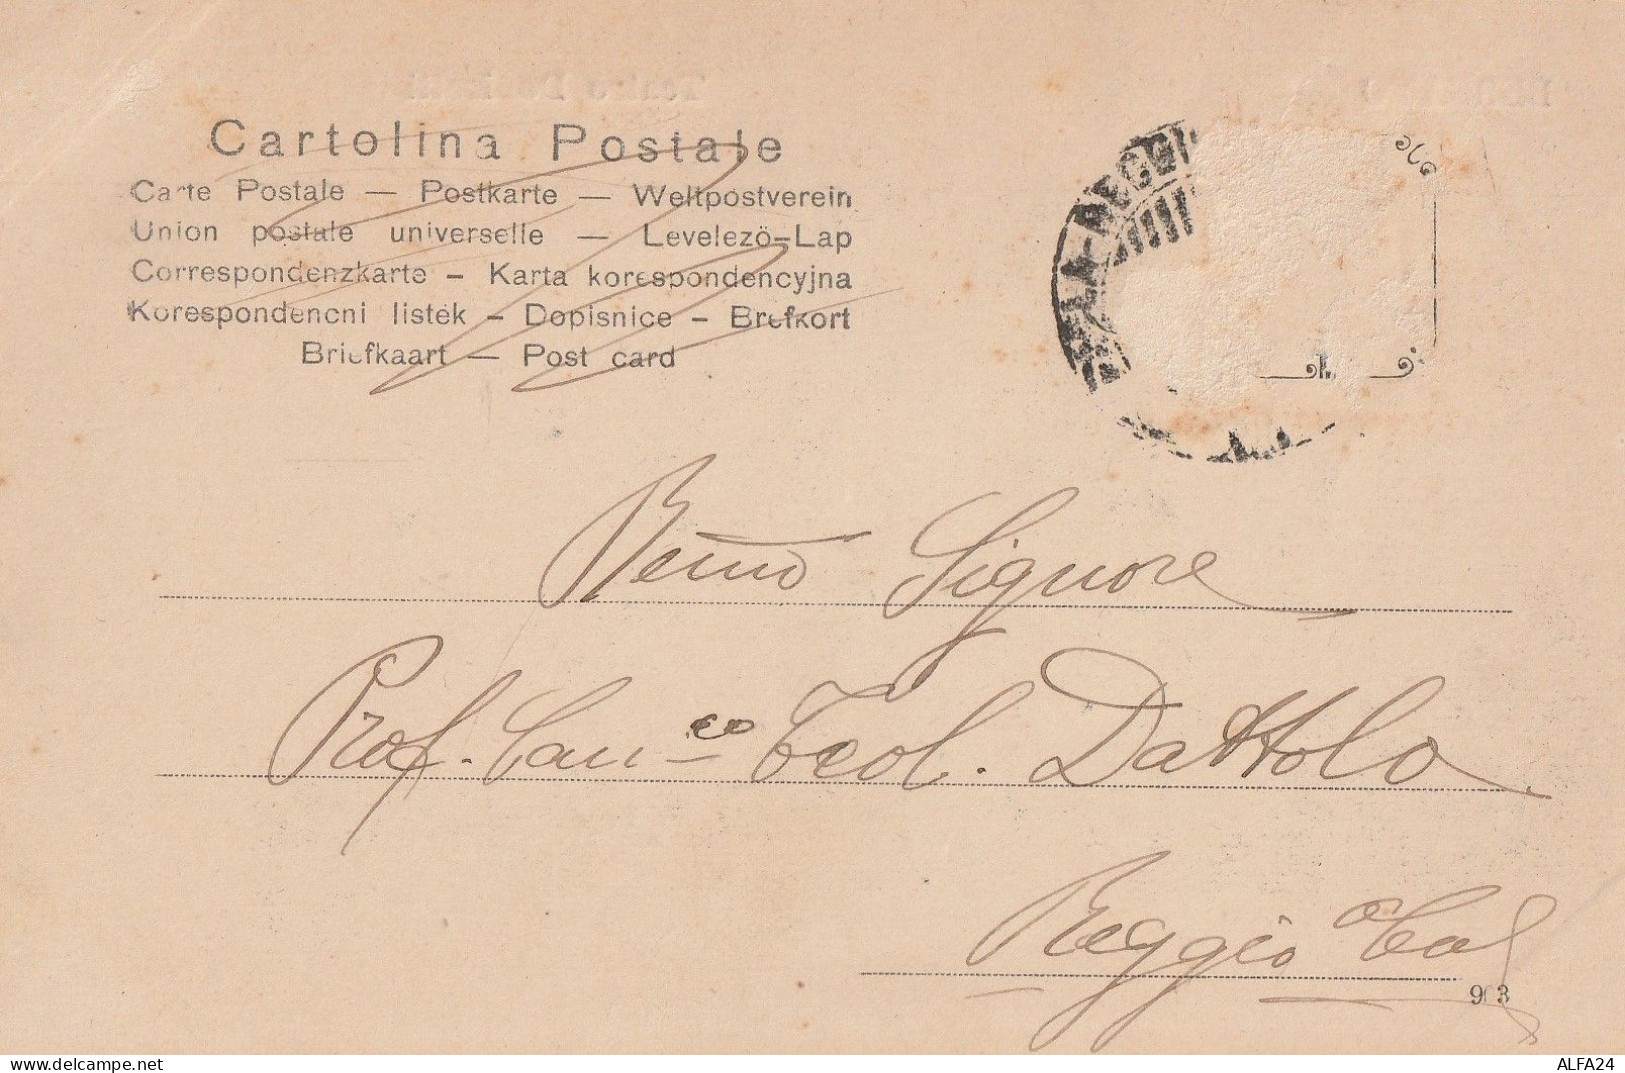 Cartolina Postale
Carte Postale — Postkarte — Weltpostverein
Union postale universelle — Levelezö-Lap
Correspondenzkarte – Karta korespondencyjna
Korespondencni listek – Dopisnice – Brefkort
Briefkaart — Post card
Signore
Prof. Can⁼ᶜᵒ Teol. Dattolo
Reggio Cal
903
ALFA24